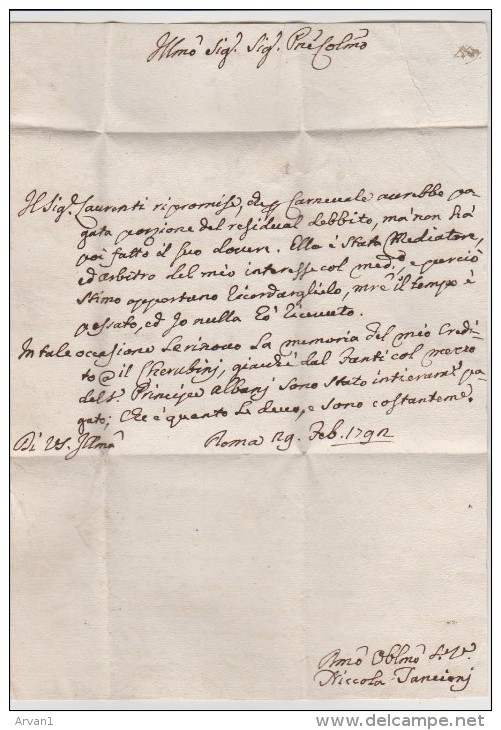 Illmõ Sig.r Sig.r Prẽ Colmõ
Il Sig.r Laurenti ripromise, che Carnevale avrebbe pa=
gata porzione del residual debbito, mà non hà
poi fatto il suo dovere. Ella è stata Mediatore,
ed arbitro del mio interesse col med.o, e perciò
stimo opportuno ricordarglielo, mrẽ il tempo è
passato, ed Io nulla hò ricevuto.
In tale occasione Le rinovo La memoria del mio Credi=
to il Cherubinj, giacchè dal Santi col mezzo
del S.r Principe Albanj sono stato intieram.e pa=
gato; Che è quanto Le devo, e sono costantem.e
Di VS. Illmã
Roma 29. Feb. 1792
Oblmõ S.re
Niccola Tancionj
Arvan1
www.delcampe.net